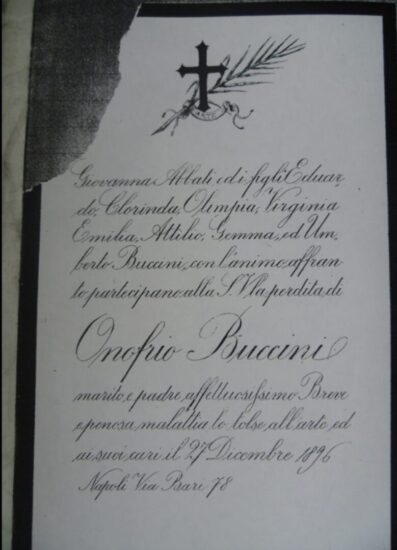 ARTE
Giovanna Abbati ed i figli Eduar,
do, Clorinda, Olimpia, Virginia
Emilia, Attilio, Gemma, ed Um,
berto Buccini, con l'animo affran
to partecipano alla S.V. la perdita di
Onofrio Buccini
marito, e padre affettuosissimo Breve
e penosa malattia lo tolse all'arte ed
ai suoi cari il 27 Dicembre 1896
Napoli Via Bari 78